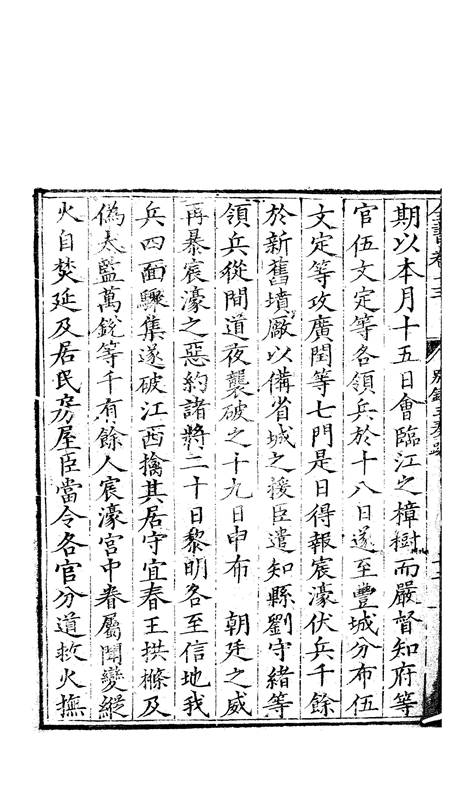 期以本月十五日會臨江之樟樹而嚴督知府等
官伍文定等各領兵於十八日遂至豐城分布伍
文定等攻廣閏等七門是日得報宸濠伏兵千餘
於新舊墳厰以備省城之援臣遣知縣劉守緒等
領兵從間道夜襲破之十九日申布　朝廷之威
再暴宸濠之惡約諸將二十日黎明各至信地我
兵四面驟集遂破江西擒其居守宜春王拱樤及
偽太監萬銳等千有餘人宸濠宮中眷屬聞變縱
火自焚延及居民房屋臣當令各官分道救火撫